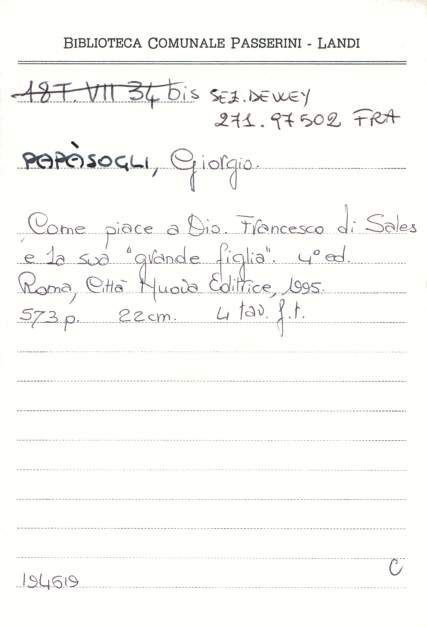 BIBLIOTECA COMUNALE PASSERINI - LANDI
18 T. VII 34 bis SEZ. DEWEY
271.97502 FRA
PAPÀSOGLI, Giorgio.
Come piace a Dio. Francesco di Sales
e la sua "grande figlia". 4° ed.
Roma, Città Nuova Editrice, 1995.
573 p. 22 cm. 4 tav. f.t.
C
194519